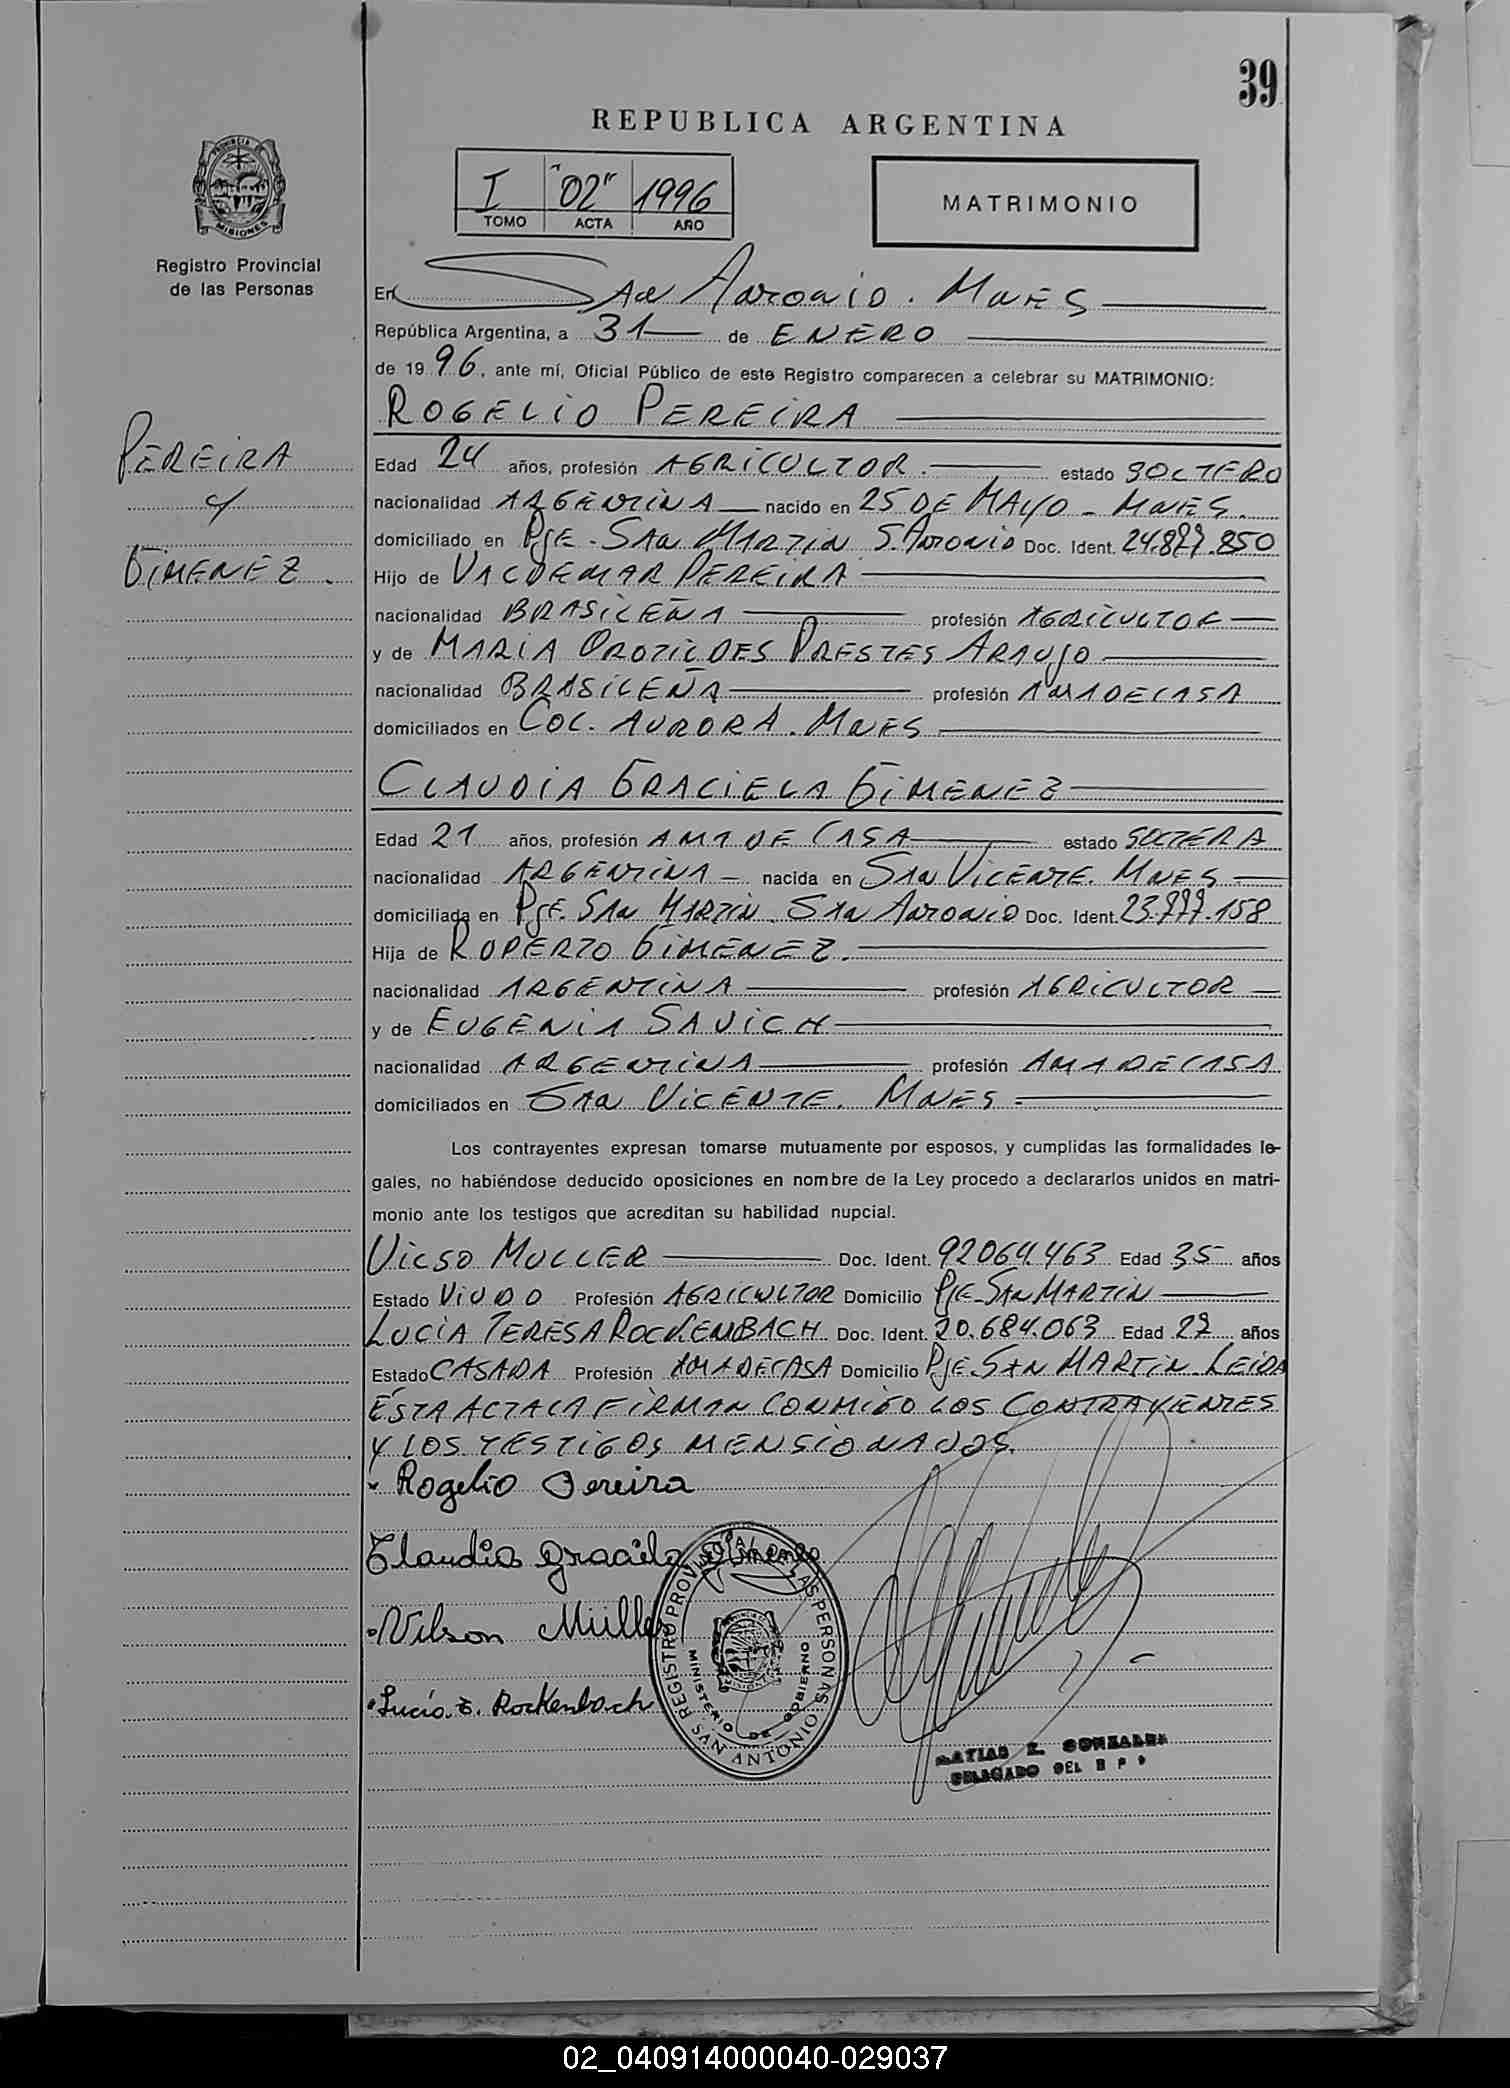 39
REPUBLICA ARGENTINA
I "02" 1996
TOMO ACTA AÑO
MATRIMONIO
PROVINCIA DE
MISIONES
Registro Provincial
de las Personas
En San Antonio. Mnes
República Argentina, a 31 de ENERO
de 1996, ante mí, Oficial Público de este Registro comparecen a celebrar su MATRIMONIO:
ROGELIO PEREIRA
PEREIRA
y
GIMENEZ.
Edad 24 años, profesión AGRICULTOR. estado SOLTERO
nacionalidad ARGENTINA nacido en 25 DE MAYO - MNES.
domiciliado en Pje. SAN MARTIN S. Antonio Doc. Ident. 24.877.850
Hijo de VALDEMAR PEREIRA
nacionalidad BRASILEÑA profesión AGRICULTOR
y de MARIA OROTILDES PRESTES ARAUJO
nacionalidad BRASILEÑA profesión AMA DE CASA
domiciliados en COL. AURORA. MNES
CLAUDIA GRACIELA GIMENEZ
Edad 21 años, profesión AMA DE CASA estado SOLTERA
nacionalidad ARGENTINA - nacida en SAN VICENTE. MNES
domiciliada en Pje. SAN MARTIN. SAN ANTONIO Doc. Ident. 23.777.158
Hija de ROPERTO GIMENEZ.
nacionalidad ARGENTINA profesión AGRICULTOR
y de EUGENIA SAVICH
nacionalidad ARGENTINA profesión AMA DE CASA
domiciliados en SAN VICENTE. MNES
Los contrayentes expresan tomarse mutuamente por esposos, y cumplidas las formalidades le-
gales, no habiéndose deducido oposiciones en nombre de la Ley procedo a declararlos unidos en matri-
monio ante los testigos que acreditan su habilidad nupcial.
VILSO MULLER Doc. Ident. 92064.463 Edad 35 años
Estado VIUDO Profesión AGRICULTOR Domicilio Pje. SAN MARTIN
LUCIA TERESA ROCKENBACH Doc. Ident. 20.684.063 Edad 27 años
Estado CASADA Profesión AMA DE CASA Domicilio Pje. SAN MARTIN. LEIDA
ESTA ACTA LA FIRMAN CONMIGO LOS CONTRAYENTES
Y LOS TESTIGOS MENSIONADOS.
Rogelio Pereira
Claudia Graciela Gimenez
Vilson Müller
Lucía T. Rockenbach
REGISTRO PROVINCIAL DE LAS PERSONAS
MINISTERIO DE GOBIERNO
SAN ANTONIO
MATIAS E. GONZALEZ
DELEGADO DEL R P P
02_040914000040-029037